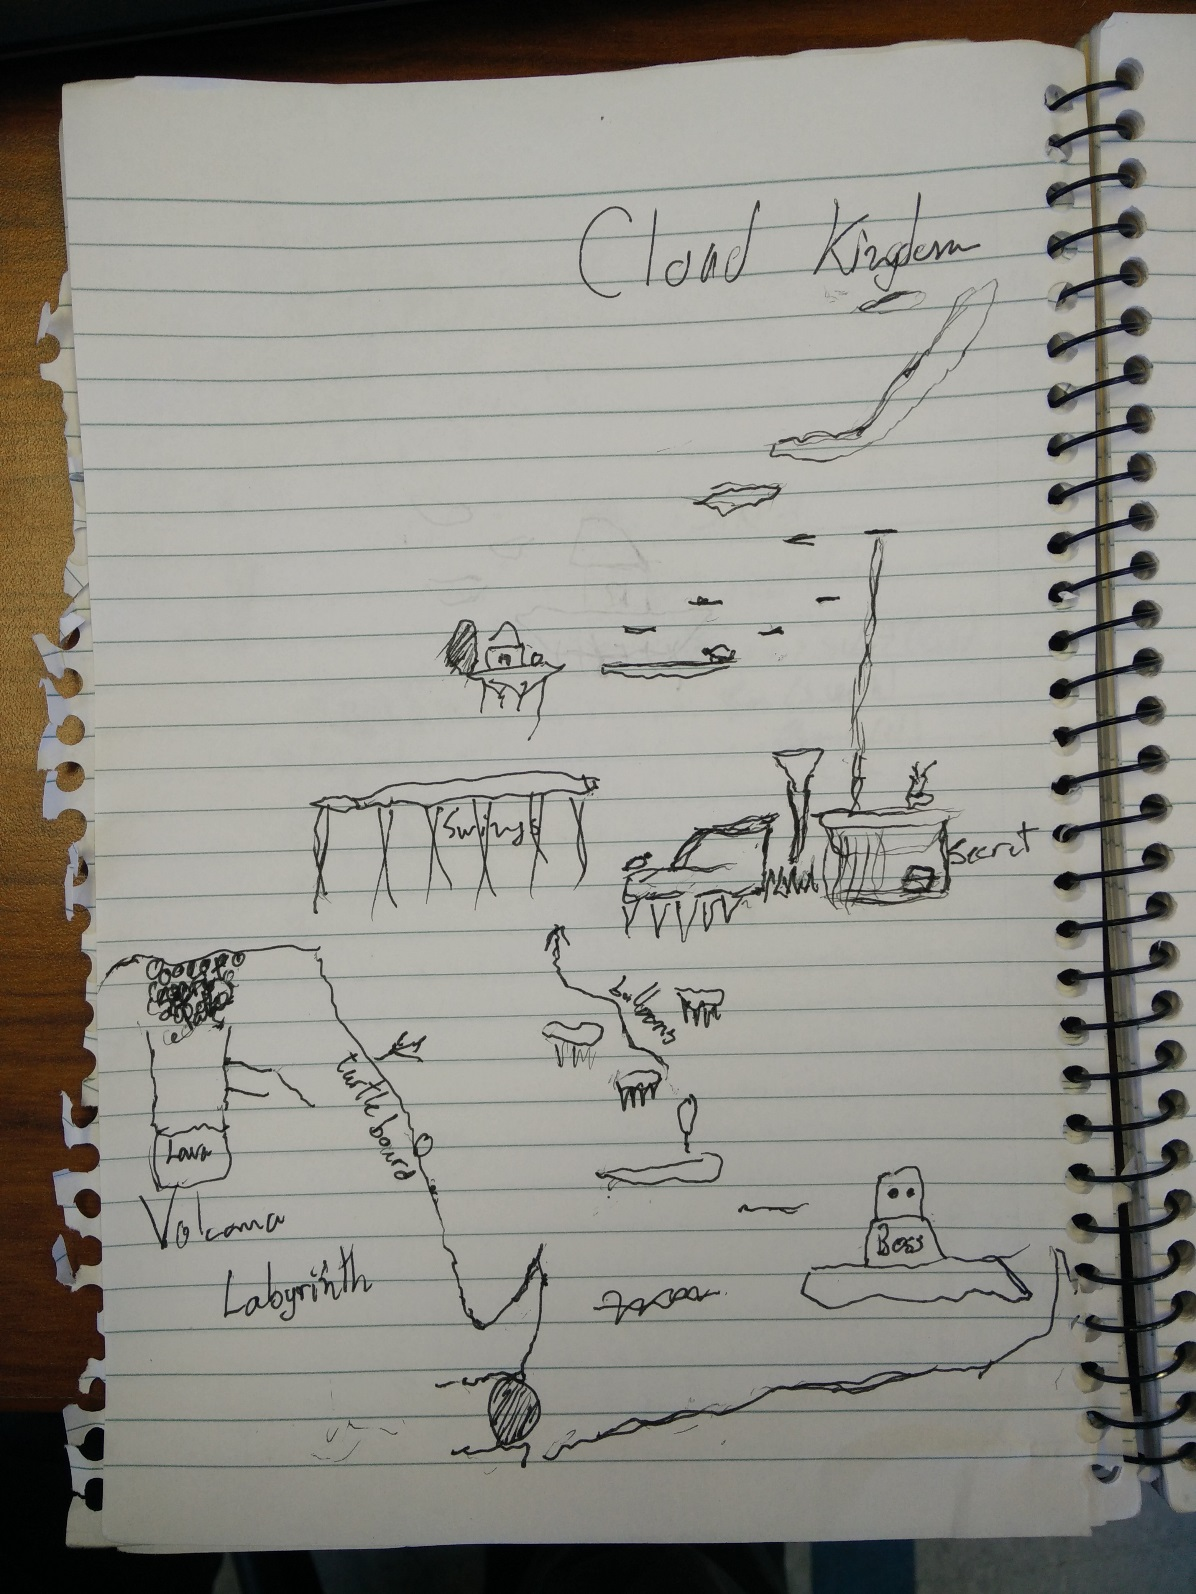 Cloud Kingdom
Swings
Secret
balloons
turtle board
Lava
Volcano
Labyrinth
Boss